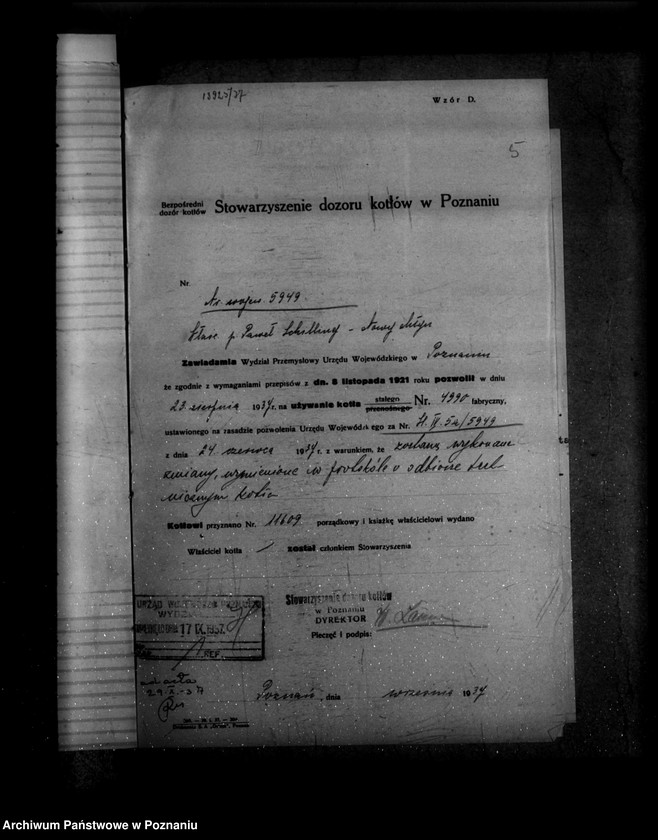 13925/37
Wzór D.
5
Bezpośredni
dozór kotłów
Stowarzyszenie dozoru kotłów w Poznaniu
Nr.
Nr. wojew. 5949.
Właśc. p. Paweł Schilling - Nowy Młyn
Zawiadamia Wydział Przemysłowy Urzędu Wojewódzkiego w Poznaniu
że zgodnie z wymaganiami przepisów z dn. 8 listopada 1921 roku pozwolił w dniu
23 sierpnia 1937 r. na używanie kotła stałego przenośnego Nr. 4990 fabryczny,
ustawionego na zasadzie pozwolenia Urzędu Wojewódzkiego za Nr. 5a/5949
z dnia 24 czerwca 1937 r. z warunkiem, że zostaną wykonane
zmiany, wymienione w protokóle o odbiorze
kotła
Kotłowi przyznano Nr. 11609 porządkowy i książkę właścicielowi wydano
Właściciel kotła został członkiem Stowarzyszenia
Stowarzyszenie dozoru kotłów
w Poznaniu
DYREKTOR
Pieczęć i podpis:
URZĄD WOJEWÓDZKI POZNAŃSKI
17 IX. 1937
REF.
ad acta
29-X-37
Poznań, dnia września 1937
Archiwum Państwowe w Poznaniu